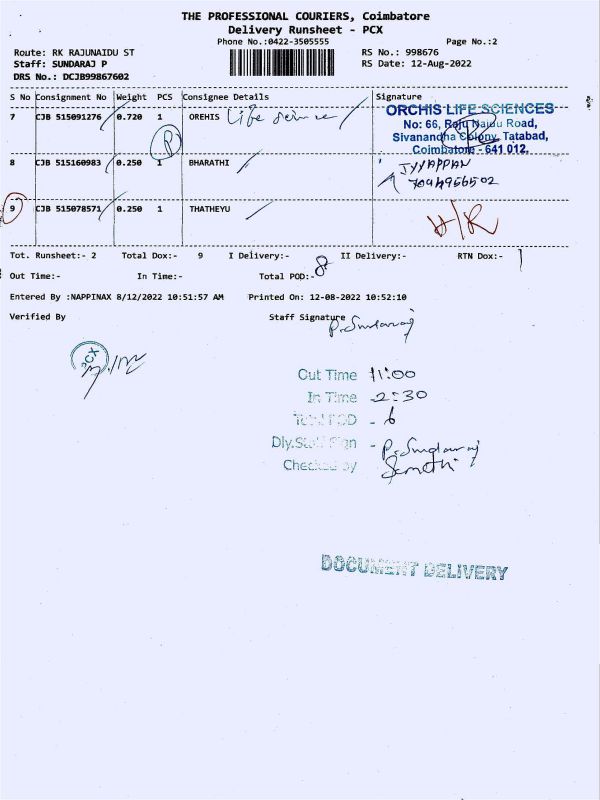 THE PROFESSIONAL COURIERS, Coimbatore
Delivery Runsheet - PCX
Phone No.:0422-3505555 Page No.:2
Route: RK RAJUNAIDU ST RS No.: 998676
Staff: SUNDARAJ P RS Date: 12-Aug-2022
DRS No.: DCJB99867602
S No Consignment No Weight PCS Consignee Details Signature
7 CJB 515091276 0.720 1 OREHIS Life science
P
ORCHIS LIFE SCIENCES
No: 66, Raju Naidu Road,
Sivanandha Colony, Tatabad,
Coimbatore - 641 012.
8 CJB 515160983 0.250 1 BHARATHI
IYYAPPAN
7094956502
9 CJB 515078571 0.250 1 THATHEYU
Tot. Runsheet:- 2 Total Dox:- 9 I Delivery:- II Delivery:- RTN Dox:- 1
Out Time:- In Time:- Total POD:- 8
Entered By :NAPPINAX 8/12/2022 10:51:57 AM Printed On: 12-08-2022 10:52:10
Verified By Staff Signature P. Sundaraj
PCX
Out Time 11:00
In Time - 2:30
Total POD - 6
Dly.Staff Sign - P. Sundaraj
Checked by
DOCUMENT DELIVERY